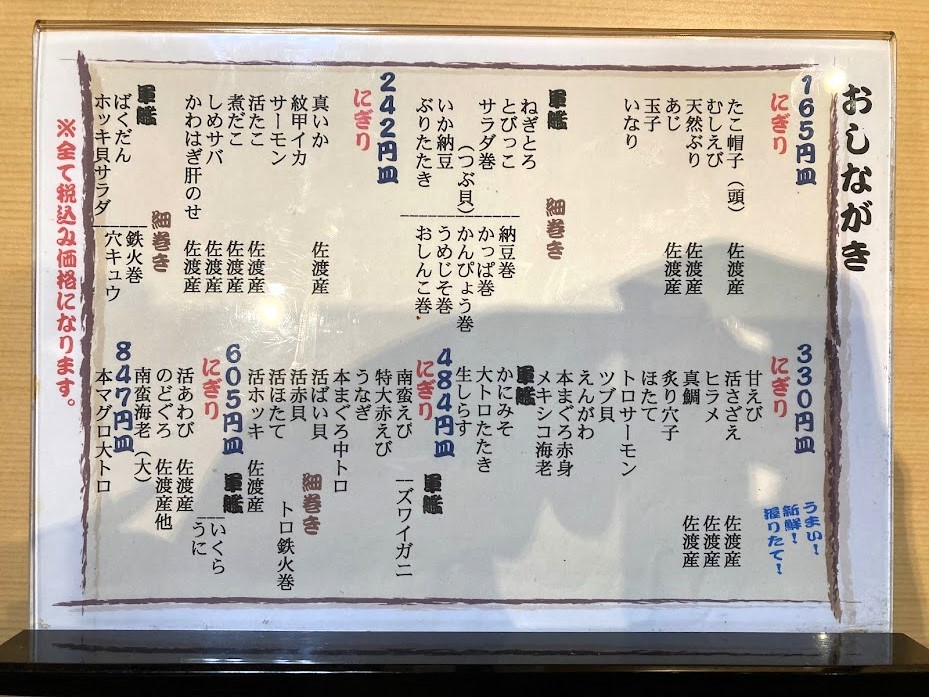 おしながき
165円皿
にぎり
たこ帽子（頭） 佐渡産
むしえび
天然ぶり 佐渡産
あじ 佐渡産
玉子
いなり
軍艦
ねぎとろ
とびっこ
サラダ巻
（つぶ貝）
いか納豆
ぶりたたき
細巻き
納豆巻
かっぱ巻
かんぴょう巻
うめじそ巻
おしんこ巻
242円皿
にぎり
真いか 佐渡産
紋甲イカ
サーモン
活たこ 佐渡産
煮だこ 佐渡産
しめサバ 佐渡産
かわはぎ肝のせ 佐渡産
軍艦
ばくだん
ホッキ貝サラダ
細巻き
鉄火巻
穴キュウ
330円皿
にぎり
うまい！
新鮮！
握りたて！
甘えび
活さざえ 佐渡産
ヒラメ 佐渡産
真鯛 佐渡産
炙り穴子
ほたて
トロサーモン
ツブ貝
えんがわ
本まぐろ赤身
メキシコ海老
軍艦
かにみそ
大トロたたき
生しらす
484円皿
にぎり
南蛮えび
特大赤えび
うなぎ
本まぐろ中トロ
活ばい貝
活赤貝
活ほたて
活ホッキ 佐渡産
軍艦
ズワイガニ
細巻き
トロ鉄火巻
605円皿
にぎり
活あわび 佐渡産
のどぐろ 佐渡産他
南蛮海老（大）
軍艦
いくら
うに
847円皿
本マグロ大トロ
※全て税込み価格になります。